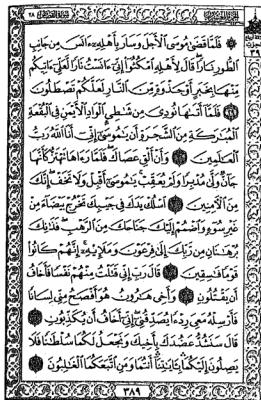 ۞ فَلَمَّا قَضَىٰ مُوسَى ٱلْأَجَلَ وَسَارَ بِأَهْلِهِۦٓ ءَانَسَ مِن جَانِبِ
ٱلطُّورِ نَارًا قَالَ لِأَهْلِهِ ٱمْكُثُوٓا۟ إِنِّىٓ ءَانَسْتُ نَارًا لَّعَلِّىٓ ءَاتِيكُم
مِّنْهَا بِخَبَرٍ أَوْ جَذْوَةٍ مِّنَ ٱلنَّارِ لَعَلَّكُمْ تَصْطَلُونَ
٢٩ فَلَمَّآ أَتَىٰهَا نُودِىَ مِن شَٰطِئِ ٱلْوَادِ ٱلْأَيْمَنِ فِى ٱلْبُقْعَةِ
ٱلْمُبَٰرَكَةِ مِنَ ٱلشَّجَرَةِ أَن يَٰمُوسَىٰٓ إِنِّىٓ أَنَا ٱللَّهُ رَبُّ
ٱلْعَٰلَمِينَ ٣٠ وَأَنْ أَلْقِ عَصَاكَ فَلَمَّا رَءَاهَا تَهْتَزُّ كَأَنَّهَا
جَآنٌّ وَلَّىٰ مُدْبِرًا وَلَمْ يُعَقِّبْ يَٰمُوسَىٰٓ أَقْبِلْ وَلَا تَخَفْ إِنَّكَ
مِنَ ٱلْءَامِنِينَ ٣١ ٱسْلُكْ يَدَكَ فِى جَيْبِكَ تَخْرُجْ بَيْضَآءَ مِنْ
غَيْرِ سُوٓءٍ وَٱضْمُمْ إِلَيْكَ جَنَاحَكَ مِنَ ٱلرَّهْبِ فَذَٰنِكَ
بُرْهَٰنَانِ مِن رَّبِّكَ إِلَىٰ فِرْعَوْنَ وَمَلَإِي۟هِۦٓ إِنَّهُمْ كَانُوا۟
قَوْمًا فَٰسِقِينَ ٣٢ قَالَ رَبِّ إِنِّى قَتَلْتُ مِنْهُمْ نَفْسًا فَأَخَافُ
أَن يَقْتُلُونِ ٣٣ وَأَخِى هَٰرُونُ هُوَ أَفْصَحُ مِنِّى لِسَانًا
فَأَرْسِلْهُ مَعِىَ رِدْءًا يُصَدِّقُنِىٓ إِنِّىٓ أَخَافُ أَن يُكَذِّبُونِ
٣٤ قَالَ سَنَشُدُّ عَضُدَكَ بِأَخِيكَ وَنَجْعَلُ لَكُمَا سُلْطَٰنًا فَلَا
يَصِلُونَ إِلَيْكُمَا بِـَٔايَٰتِنَآ أَنتُمَا وَمَنِ ٱتَّبَعَكُمَا ٱلْغَٰلِبُونَ ٣٥
٣٨٩